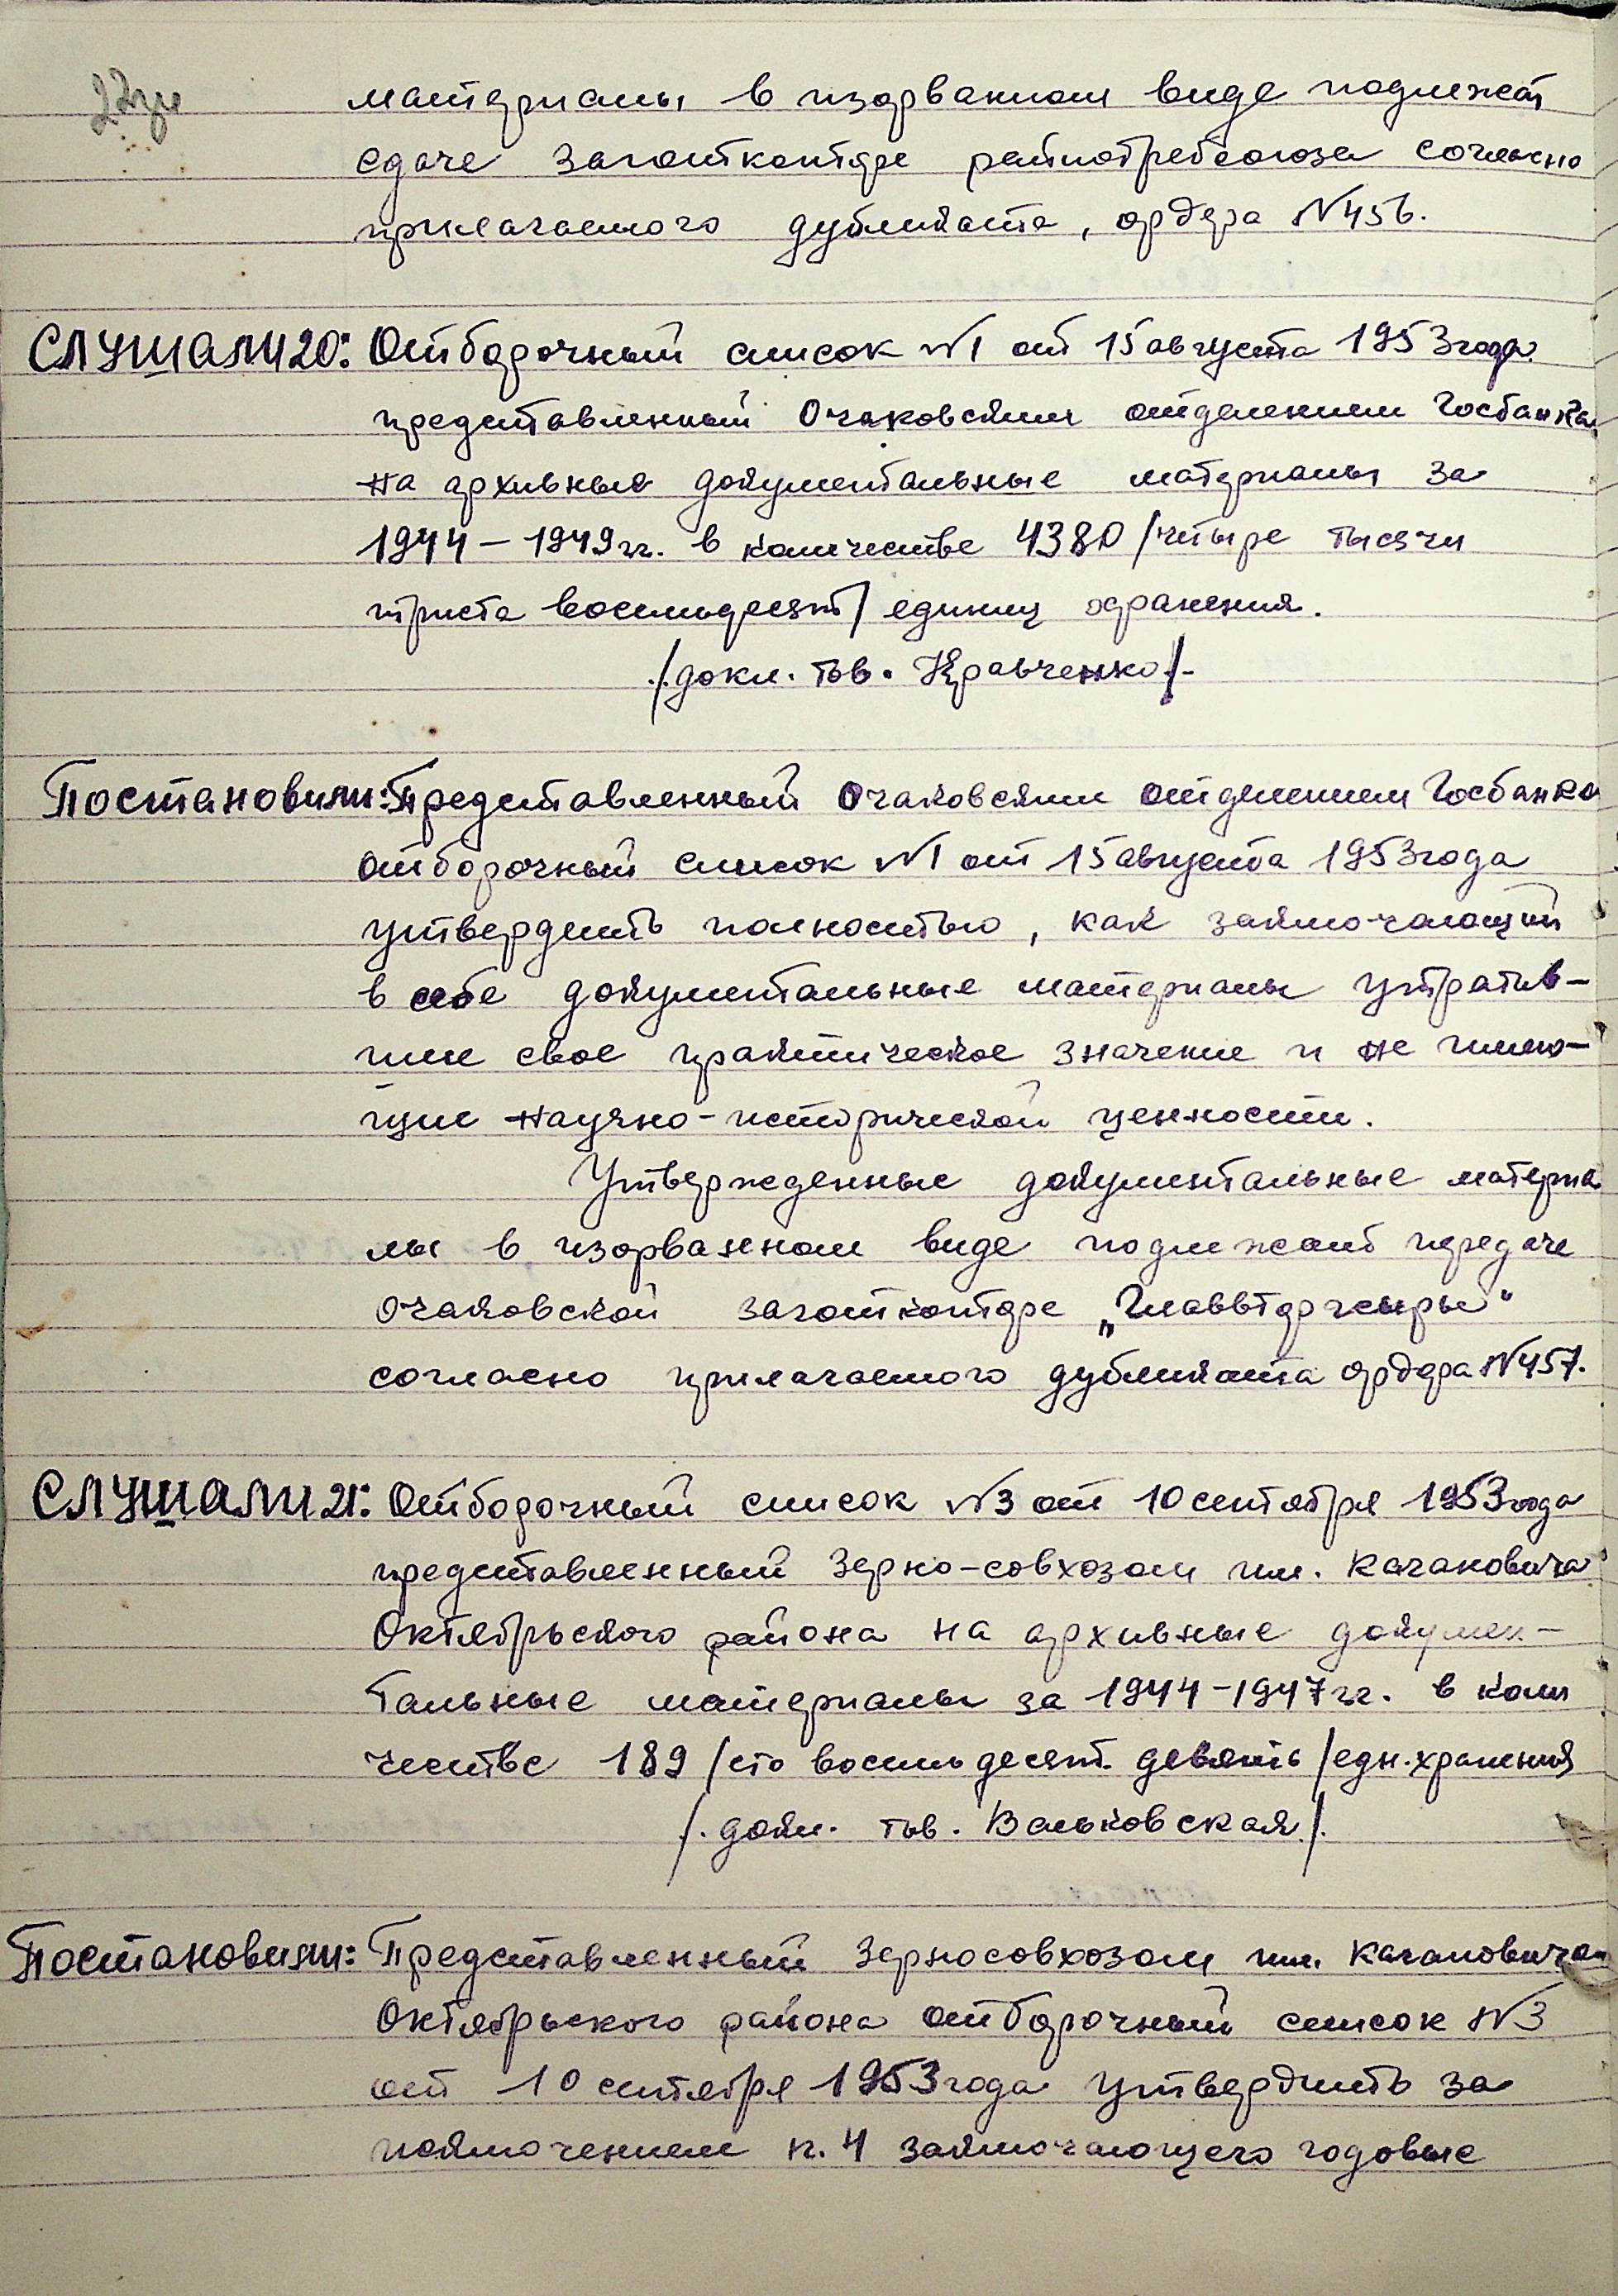 материалы в изорванном виде подлежат
сдаче заготконторе райпотребсоюза согласно
прилагаемого дубликата, ордера №456.
СЛУШАЛИ 20: Отборочный список №1 от 15 августа 1953 года
представленный Очаковским отделением Госбанка
на архивные документальные материалы за
1944-1949 гг. в количестве 4380 /четыре тысячи
триста восемьдесят/ единиц хранения.
/докл. тов. Кравченко/-
Постановили: Представленный Очаковским отделением Госбанка
отборочный список №1 от 15 августа 1953 года
утвердить полностью, как заключающий
в себе документальные материалы утратив-
шие свое практическое значение и не имею-
щие научно-исторической ценности.
Утвержденные документальные материа
лы в изорванном виде подлежат передаче
Очаковской заготконторе „Главвторчермет“
согласно прилагаемого дубликата ордера №457.
СЛУШАЛИ 21: Отборочный список №3 от 10 сентября 1953 года
представленный Зерно-совхозом им. Кагановича
Октябрьского района на архивные докумен-
тальные материалы за 1944-1947 гг. в коли
честве 189 /сто восемьдесят девять/ едн. хранения
/. докл. тов. Вальковская/.
Постановили: Представленный Зерносовхозом им. Кагановича
Октябрьского района отборочный список №3
от 10 сентября 1953 года утвердить за
исключением п. 4 заключающего годовые